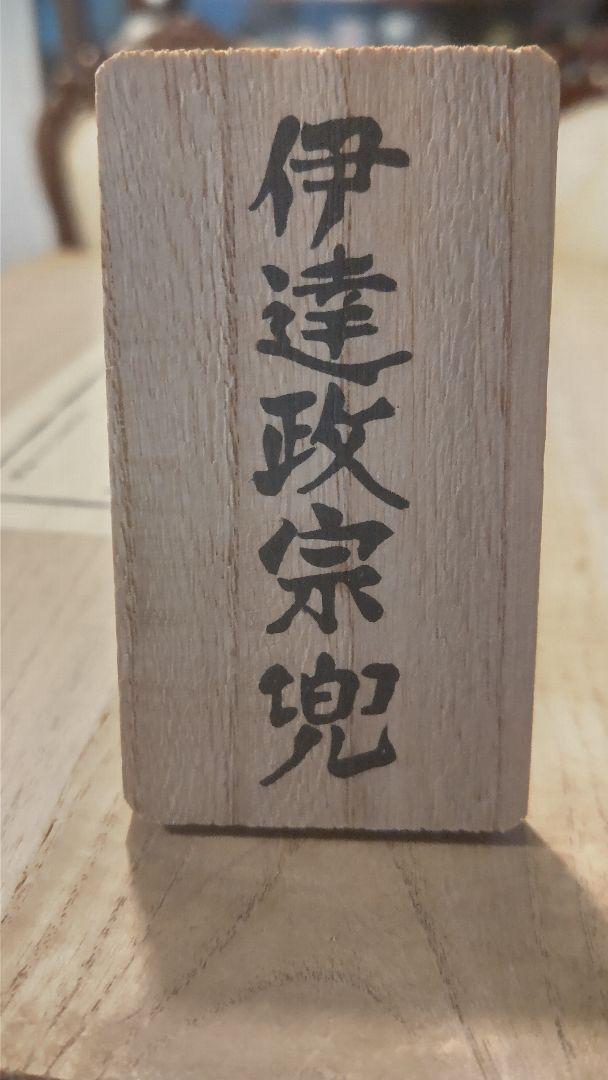 伊達政宗兜